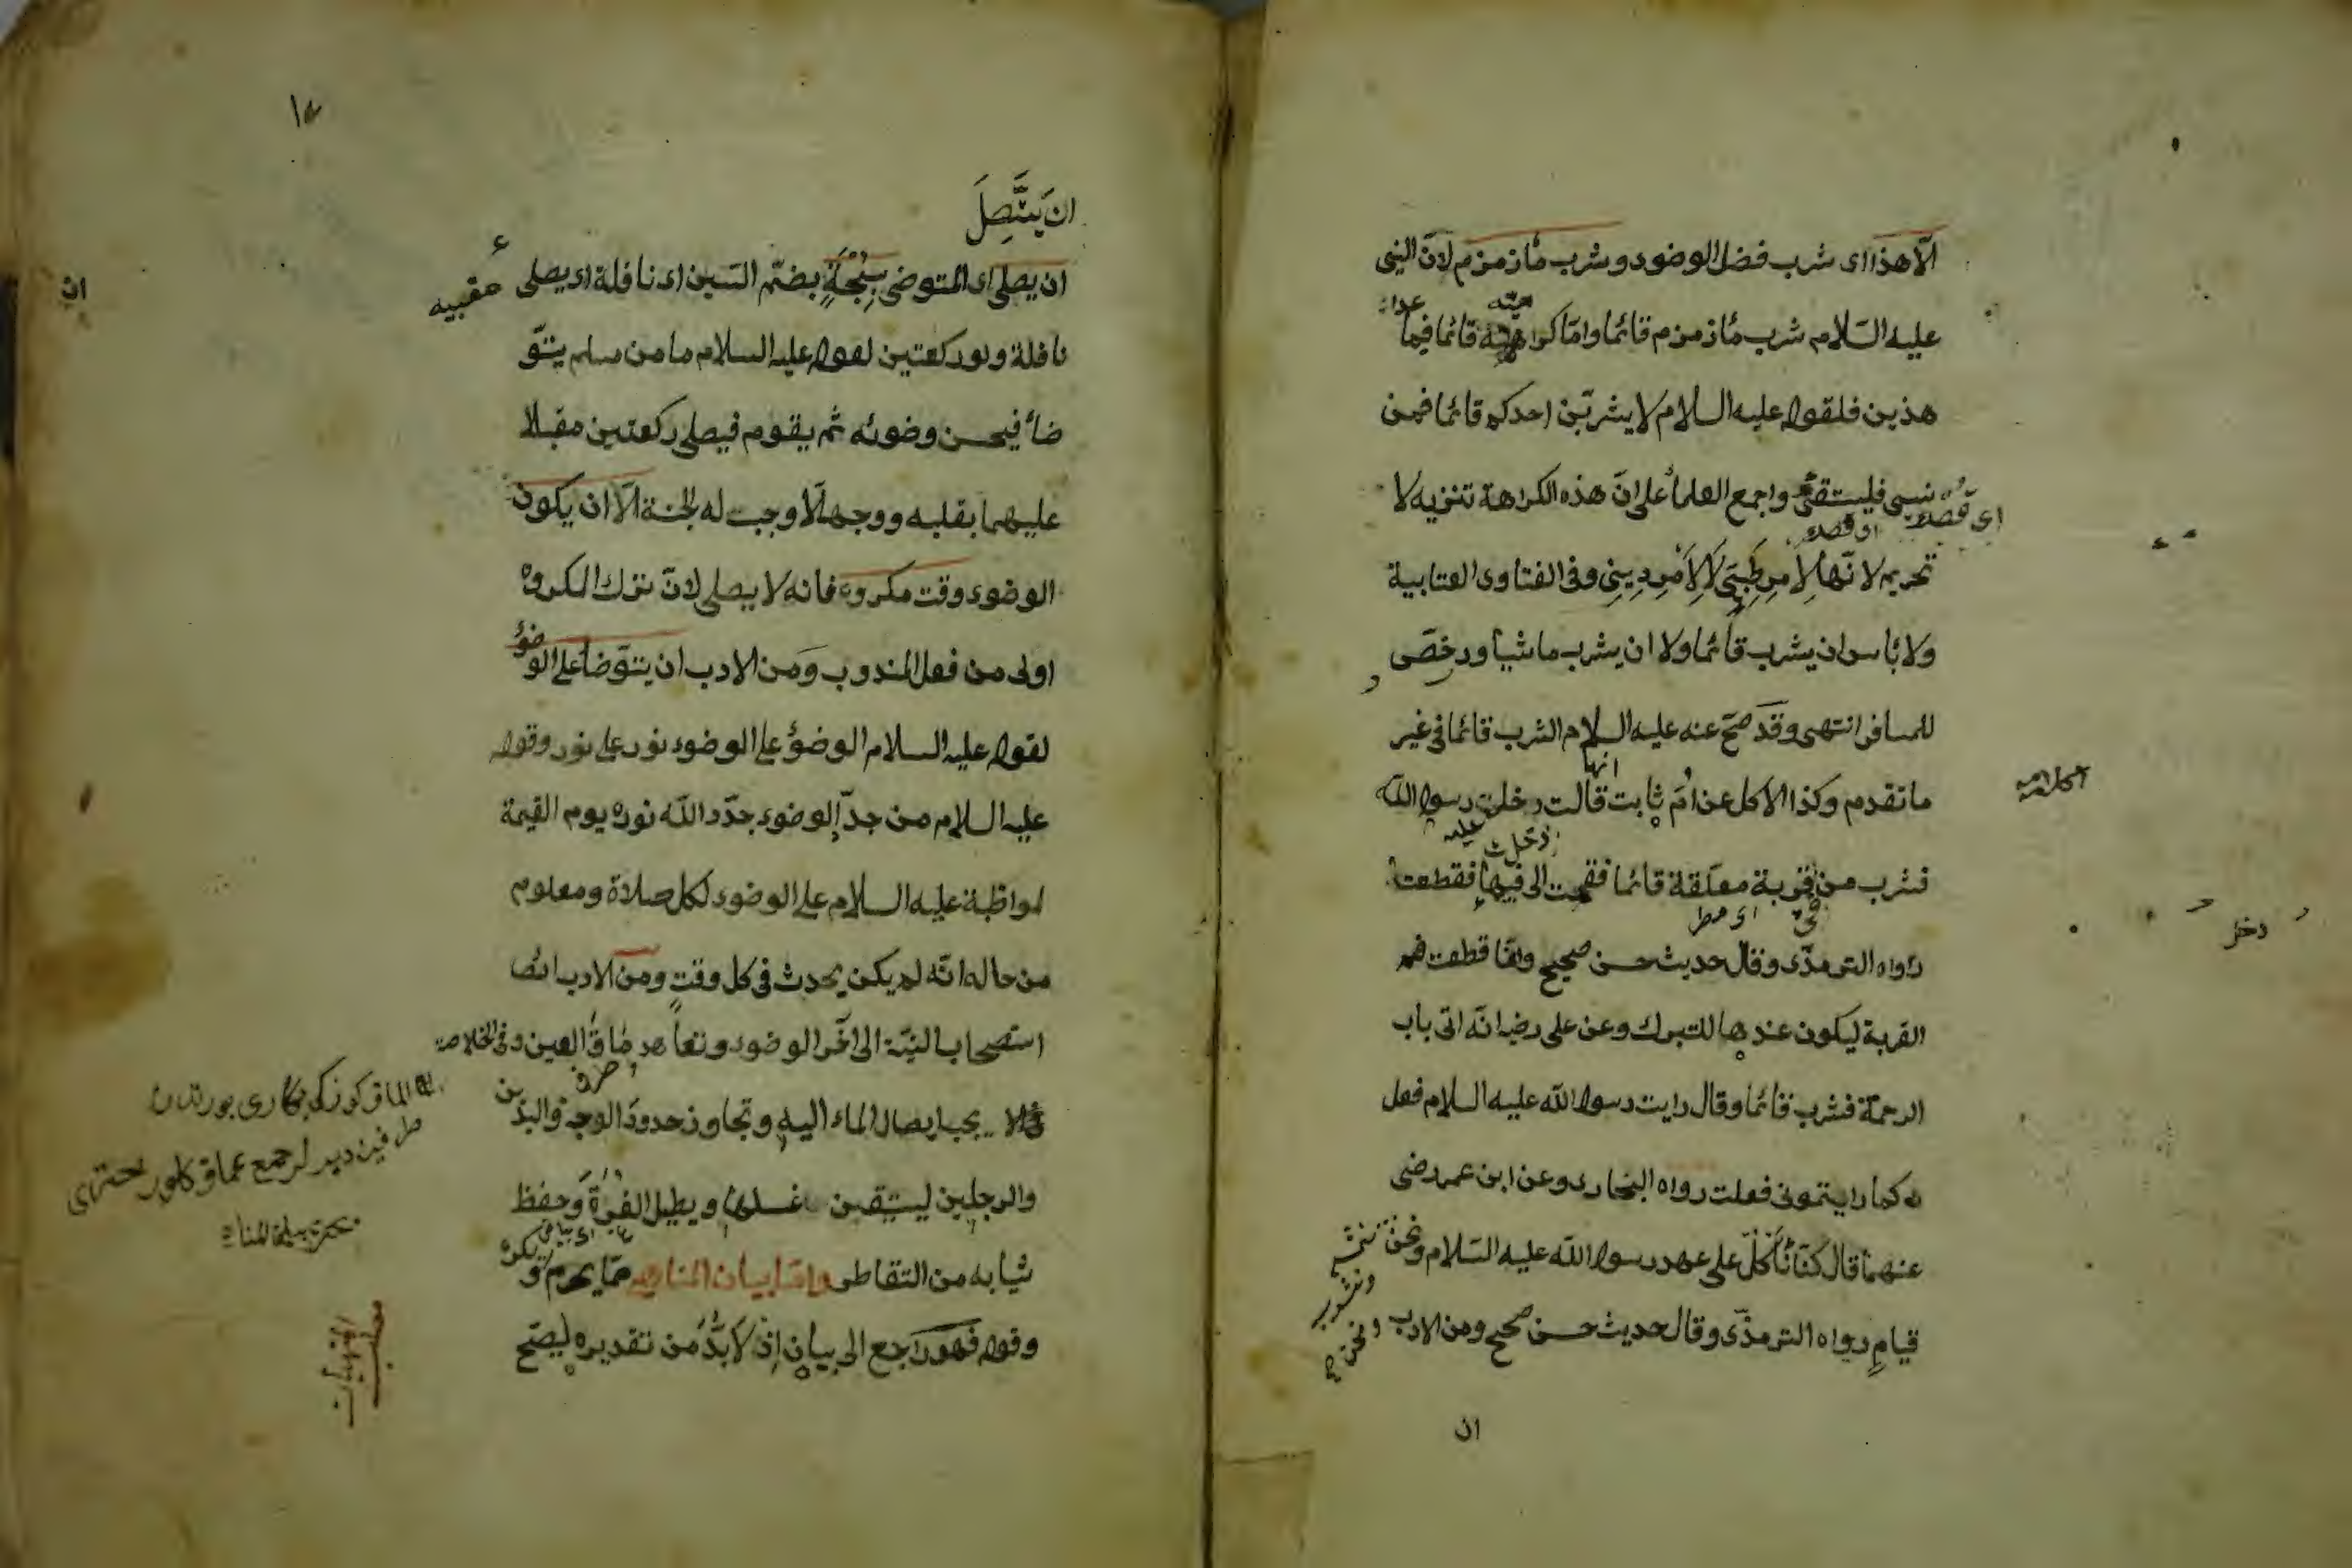 الّا هذا اى شرب فضل الوضوء وشرب ماء زمزم لانّ النبى
عليه السّلام شرب ماء زمزم قائما وامّا كراهيته قائما فيما عدا
هذين فلقوله عليه السلام لا يشربّن احدكم قائما فمن
نسى فليستقئ واجمع العلماء على انّ هذه الكراهة تنزيه لا
تحريم لا نّها لِاَمرٍ طِبِّىٍ لَا لِاَمْرٍ دِينِىٍ وفى الفتاوى العتابية
ولا بأس ان يشرب قائما ولا ان يشرب ماشيا ورخصّ
للمسافر انتهى وقد صحّ عنه عليه السلام الشرب قائما فى غير
ما تقدم وكذا الاكل عن امّ ثابت انها قالت دخلت رسول الله
فشرب من قربة معلّقة قائما فقمت الى فيها فقطعت
رواه الترمذّى وقال حديث حسن صحيح وانّما قطعت فم
القربة ليكون عندها للتبرك وعن على رض انّه اتى باب
الرحمة فشرب قائما وقال رايت رسول الله عليه السلام فعل
له كما رايتمونى فعلت رواه البخارى وعن ابن عمر رضى
عنهما قال كنّا نأكل على عهد رسول الله عليه السّلام ونحن نمشى
ونشرب ونحن
قيام رواه الترمذّى وقال حديث حسن صحيح ومن الادب
ان
دخل
ان يتَّصِلَ
ان يصلى اى المتوضى سُبْحَةً بضمّ السّين اى نافلة اى يصلى عقبيه
نافلة ولو ركعتين لقوله عليه السلام ما من مسلم يتوّ
ضأ فيحسن وضوئه ثم يقوم فيصلى ركعتين مقبلا
عليهما بقلبه ووجهه الّا وجبت له الجنة الّا ان يكون
الوضوء وقت مكروه فانه لا يصلى لانّ ترك المكروه
اولى من فعل المندوب ومَن الادب ان يتوّضأ على الوضوء
لقوله عليه السلام الوضؤ على الوضوء نور على نور وقوله
عليه السلام من جدّد الوضوء جدّد الله نوره يوم القيمة
لمواظبة عليه السلام على الوضوء لكل صلاة ومعلوم
من حاله انّه لم يكن يحدث فى كل وقت ومن الادب ايضا
استصحاب النيّة الى اخّر الوضوء وتعاهد مُاقَ العين وفى الخلاصة
يجب ايصال الماء اليه وتجاوز حدود الوجه واليدين
والرجلين ليستيقن غسلها ويطيل الغُرّة وحفظ
ثيابه من التقاطر وامّا بيان المناهى ممّا يحرم ويكره
وقوله فهو راجع الى بيان اذ لَا بُدَّ من تقديره ليصّح
مطلب
المنهيات